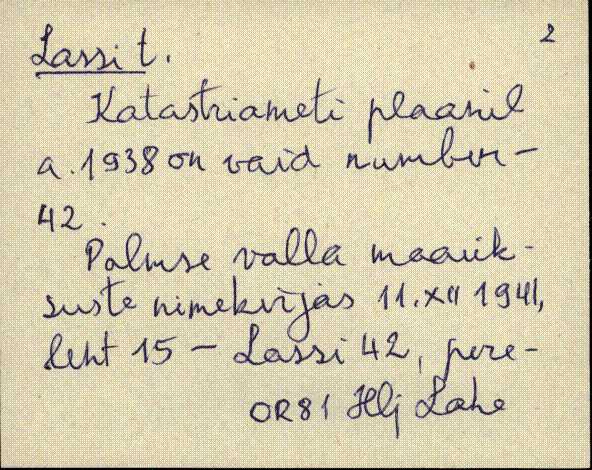 2
Lassi t.
Katastriameti plaanil
a. 1938 on vaid number -
42.
Palmse valla maaük-
suste nimekirjas 11. XII 1941,
leht 15 - Lassi 42, pere-
OR81 Hlj Lahe